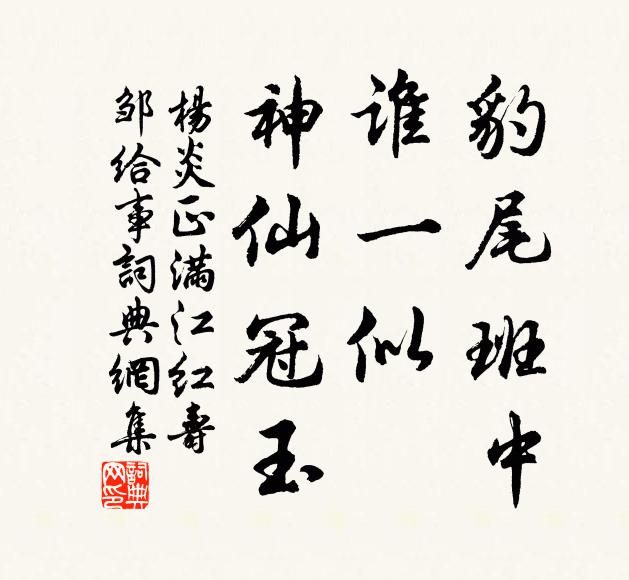 豹尾班中
誰一似
神仙冠玉
楊炎正滿江紅壽
鄒給事詞典網集
詞典网印